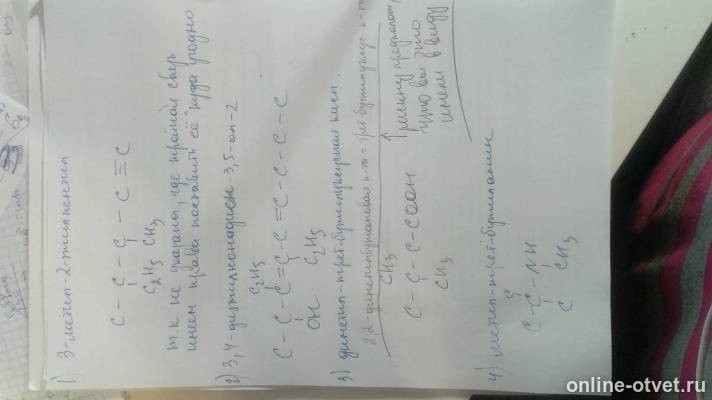 1) 3-метил-2-этилпентил
C - C - C - C ≡ C
C₂H₅ CH₃
т.к не указана, где кратная связь
имеем права поставить её куда угодно
2) 3,4-диэтилнонадиен-3,5-ол-2
C₂H₅
C - C - C = C - C = C - C - C - C
OH C₂H₅
3) диметил-трет-бутилуксусная кисл.
2,2-диметилбутановая к-та = трет-бутилуксус к-та
CH₃
C - C - C - COOH
CH₃
↑ решину предполож,
что вы это
имели в виду
4) метил-трет-бутиламин
C
C - C - NH
C CH₃
online-otvet.ru